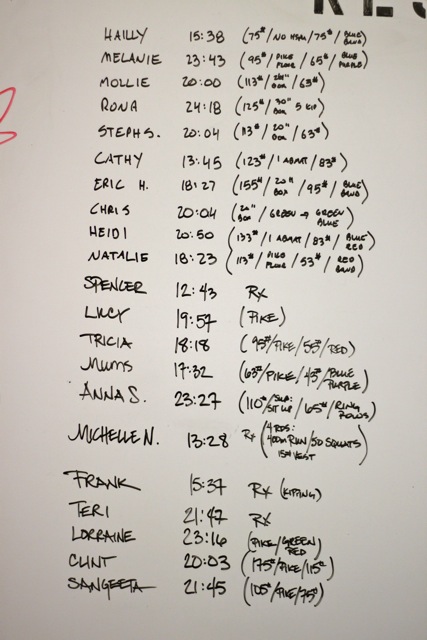 HAILLY 15:38 (75#/NO HSPU/75#/BLUE BAND)
MELANIE 23:43 (95#/PIKE FLOOR/65#/BLUE PURPLE)
MOLLIE 20:00 (113#/20" BOX/63#)
RONA 24:18 (125#/30" BOX 5 KIP)
STEPH S. 20:04 (113#/20" BOX/63#)
CATHY 13:45 (123#/1 ABMAT/83#)
ERIC H. 18:27 (155#/20" BOX/95#/BLUE BAND)
CHRIS 20:04 (20" BOX/GREEN → GREEN BLUE)
HEIDI 20:50 (133#/1 ABMAT/83#/BLUE RED)
NATALIE 18:23 (113#/PIKE FLOOR/53#/RED BAND)
SPENCER 12:43 Rx
LUCY 19:57 (PIKE)
TRICIA 18:18 (95#/PIKE/55#/RED)
MUMS 17:32 (63#/PIKE/43#/BLUE PURPLE)
ANNA S. 23:27 (110#/SUB: SIT UP/65#/RING ROWS)
MICHELLE N. 13:28 Rx (4 RDS: 400M RUN/50 SQUATS 15# VEST)
FRANK 15:37 Rx (KIPING)
TERI 21:47 Rx
LORRAINE 23:16 (PIKE/GREEN RED)
CLINT 20:03 (175#/PIKE/115#)
SANGEETA 21:45 (105#/PIKE/75#)